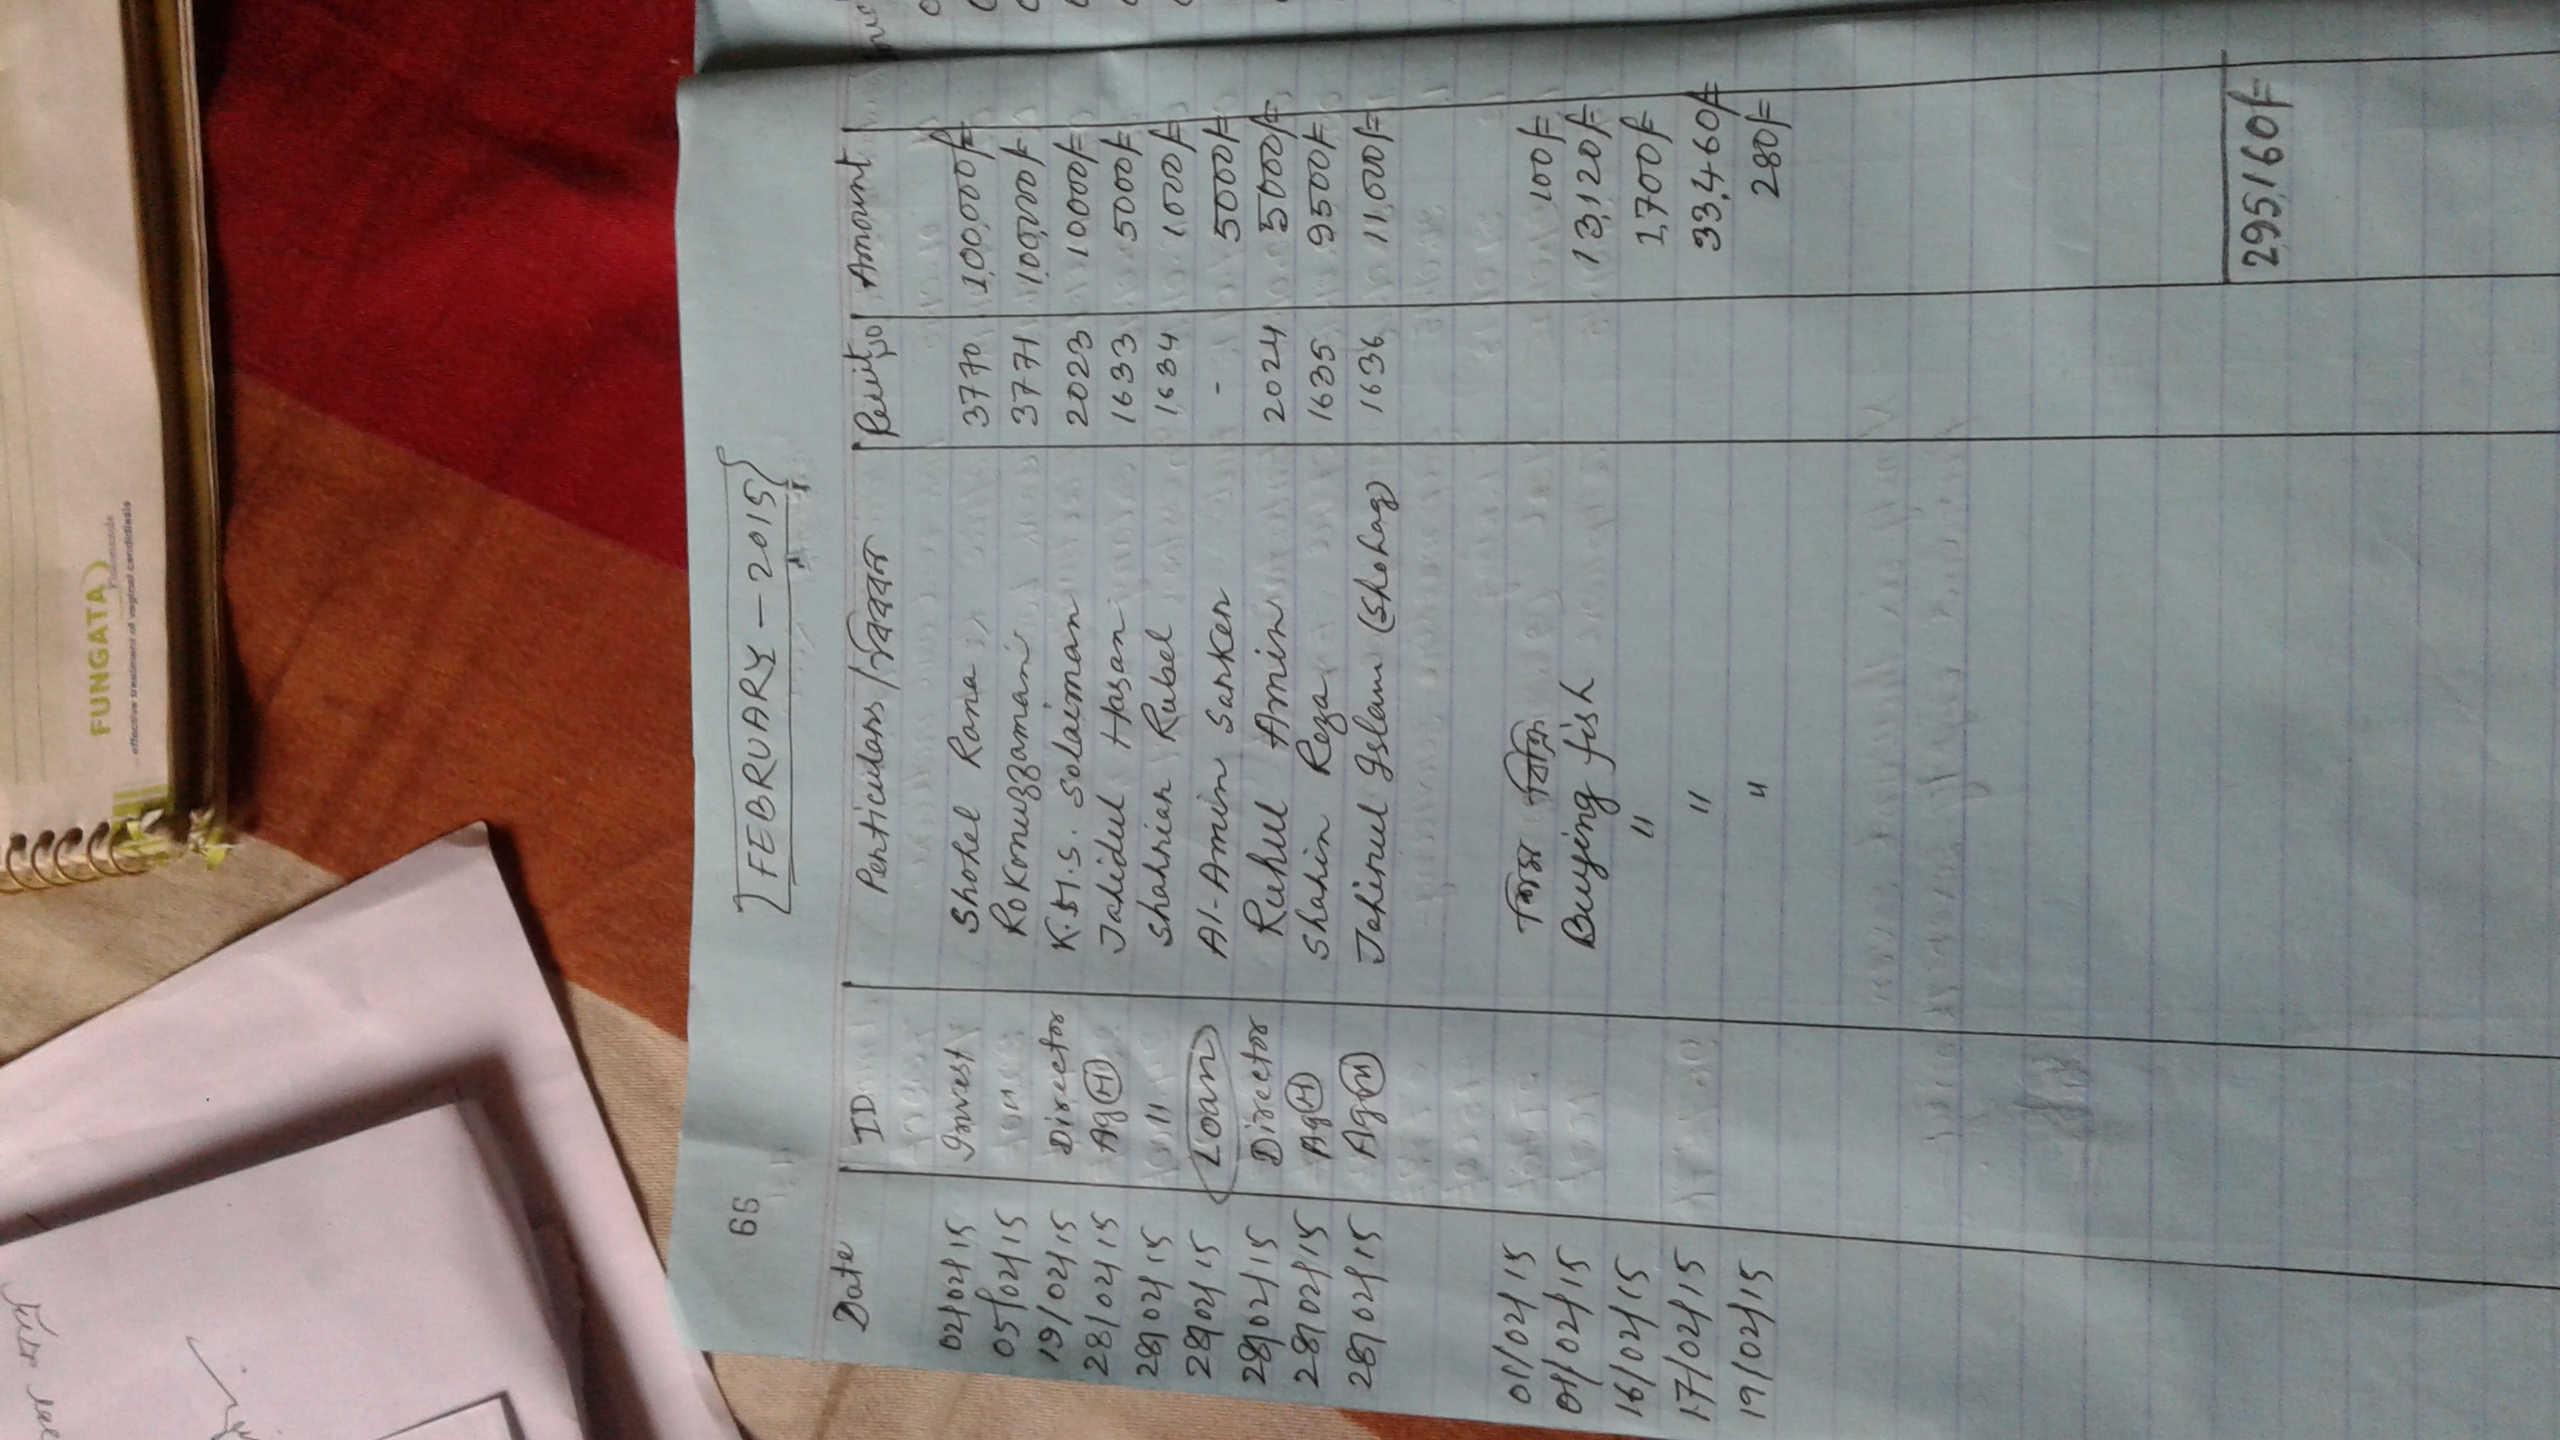 FUNGATA
effective treatment of vaginal candidiasis
65
FEBRUARY - 2015
Date ID Perticulars / বিবরন Reciit NO Amount
02/02/15 Invest Shohel Rana 3770 1,00,000/=
05/02/15 " Rokonuzzaman 3771 1,00,000/=
19/02/15 Director K.M.S. Solaiman 2023 10000/=
28/02/15 Ag(H) Jahidul Hasan 1633 5000/=
28/02/15 " Shahriar Rubel 1634 1,000/=
28/02/15 Loan Al-Amin Sarker - 5000/=
28/02/15 Director Ruhul Amin 2024 5000/=
28/02/15 Ag(H) Shahin Reza 1635 9500/=
28/02/15 Ag(H) Jahirul Islam (Shohag) 1636 11,000/=
01/02/15 শিম বিক্রি 100/=
01/02/15 Buying fish 13,120/=
16/02/15 " 1,700/=
17/02/15 " 33,460/=
19/02/15 " 280/=
295,160/=